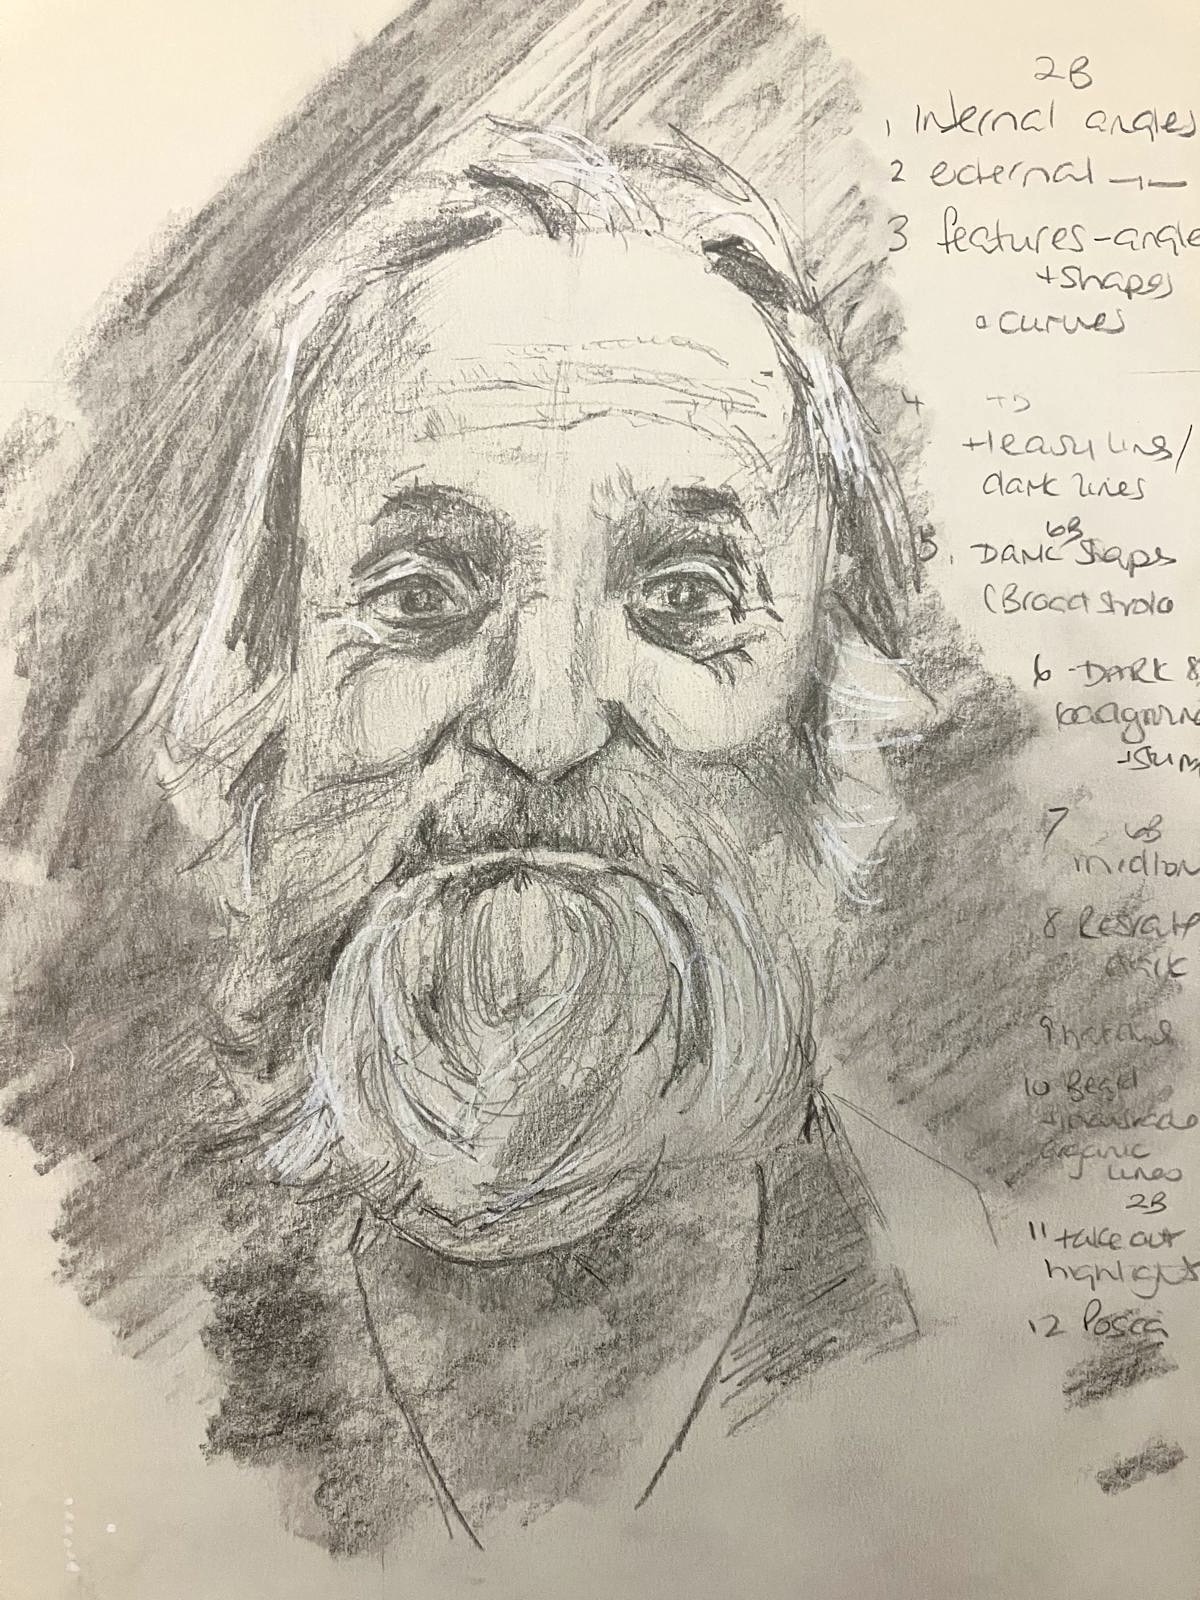 2B
1 Internal angles
2 external
3 features-angle
+shapes
curves
4
+ heavy lines/
dark lines
6B
5. DARK Shapes
(Broad stroke
6 DARK 8
background
7 6B
midton
8 Restate
dark
9
10
organic
lines
2B
11 take out
highlights
12 Posca